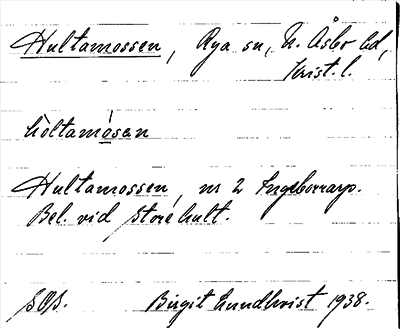 Hultamossen, Rya sn, N. Åsbo hd,
Krist. l.
hòltamósan
Hultamossen, nr 2 Ingeborrarp.
Bel. vid Store hult.
SOS. Birgit Lundkvist 1938.